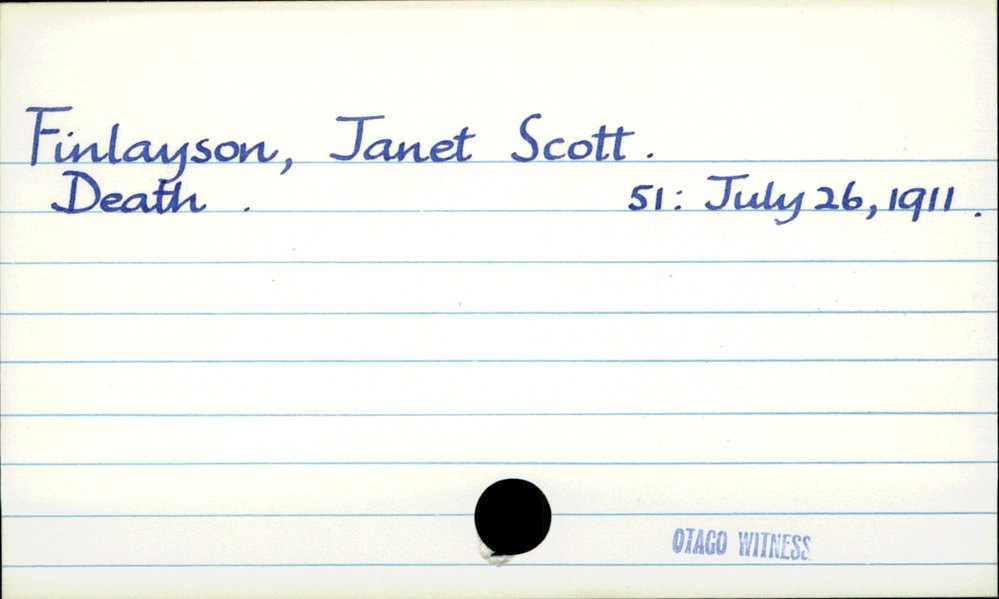 Finlayson, Janet Scott.
Death. 51: July 26, 1911.
OTAGO WITNESS